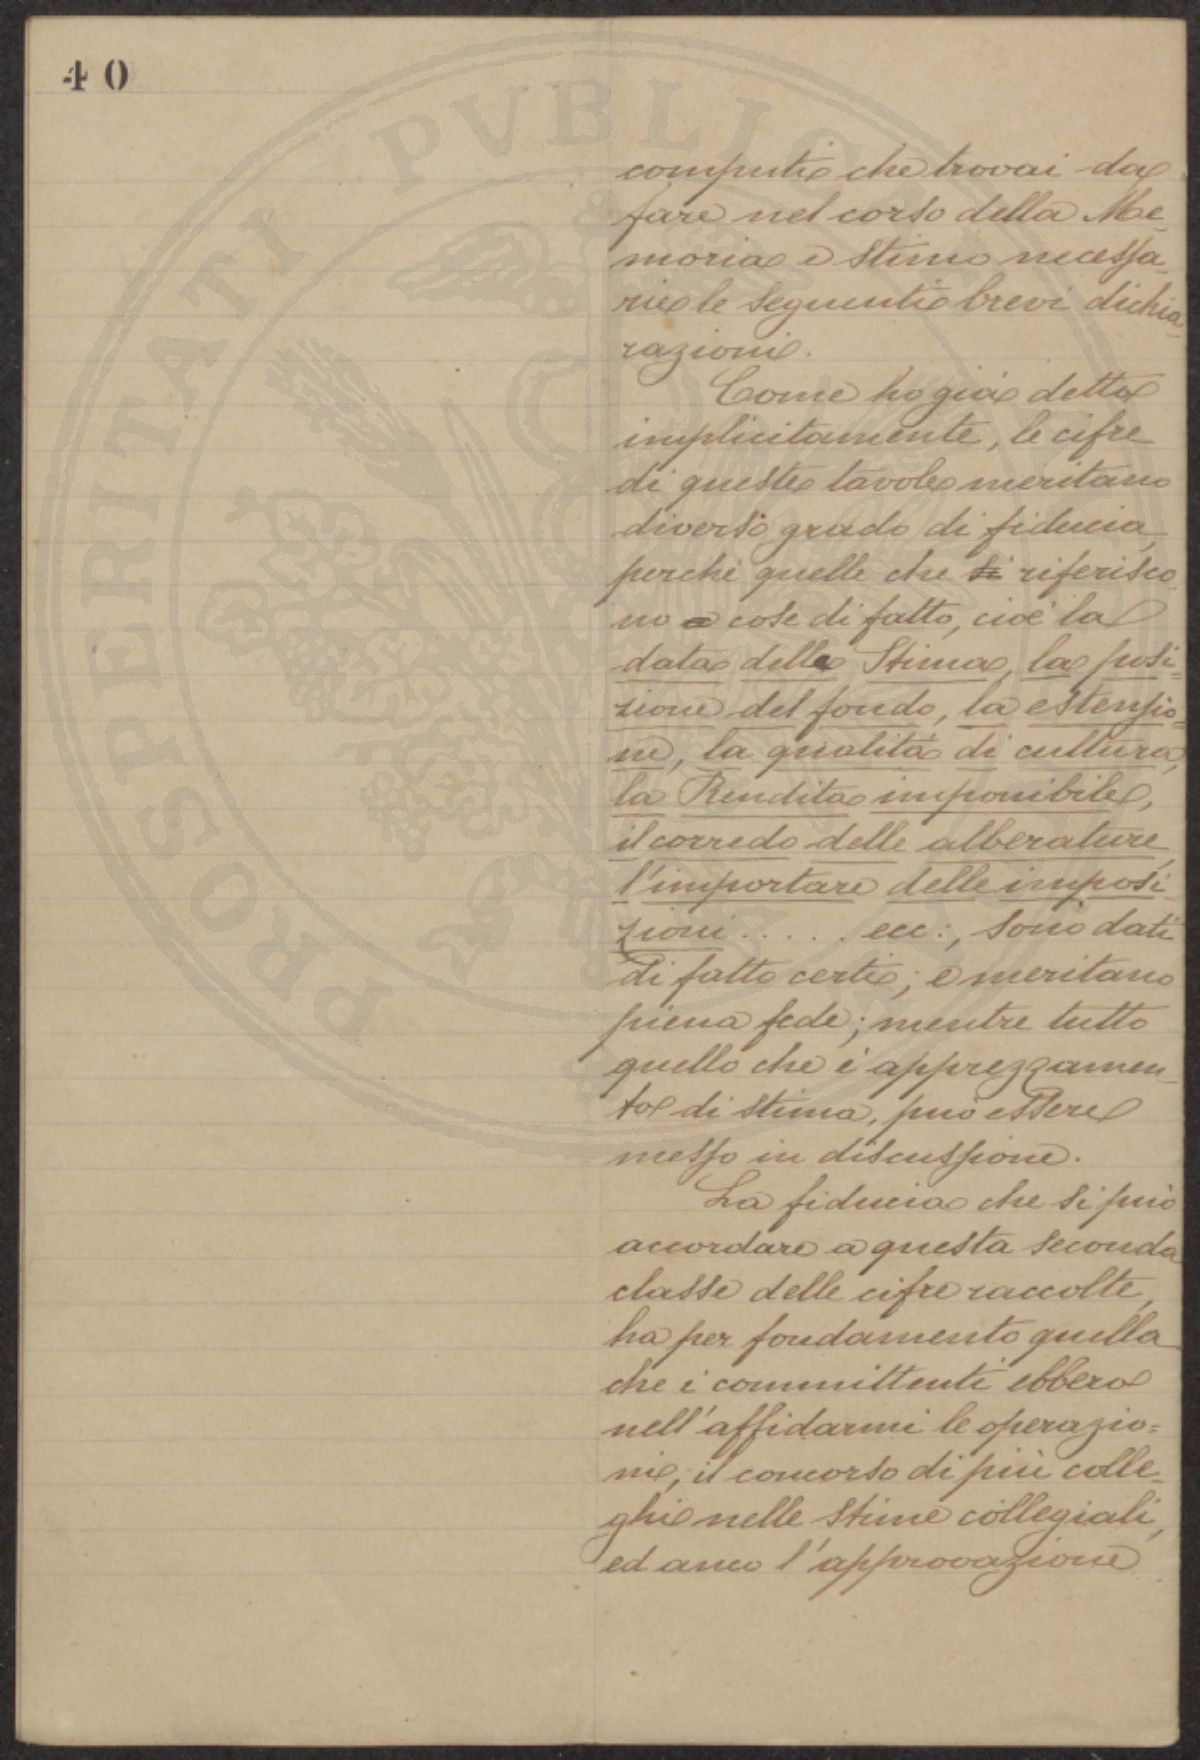 40
PROSPERITATI PVBLIC
computi che trovai da
fare nel corso della Me_
moria e stimo necessa_
rie le seguenti brevi dichia_
razioni.
Come ho già detto
implicitamente, le cifre
di queste tavole meritano
diverso grado di fiducia,
perchè quelle che si riferisco_
no a cose di fatto, cioè la
data della Stima, la posi=
zione del fondo, la estensio=
ne, la qualità di cultura,
la Rendita imponibile,
il corredo delle alberature,
l'importare delle imposi_
zioni ..... ecc:, sono dati
di fatto certi; e meritano
piena fede; mentre tutto
quello che è apprezzamen_
to di stima, può essere
messo in discussione.
La fiducia che si può
accordare a questa seconda
classe delle cifre raccolte,
ha per fondamento quella
che i committenti ebbero
nell'affidarmi le operazio=
ni, il concorso di più colle=
ghi nelle stime collegiali,
ed anco l'approvazione